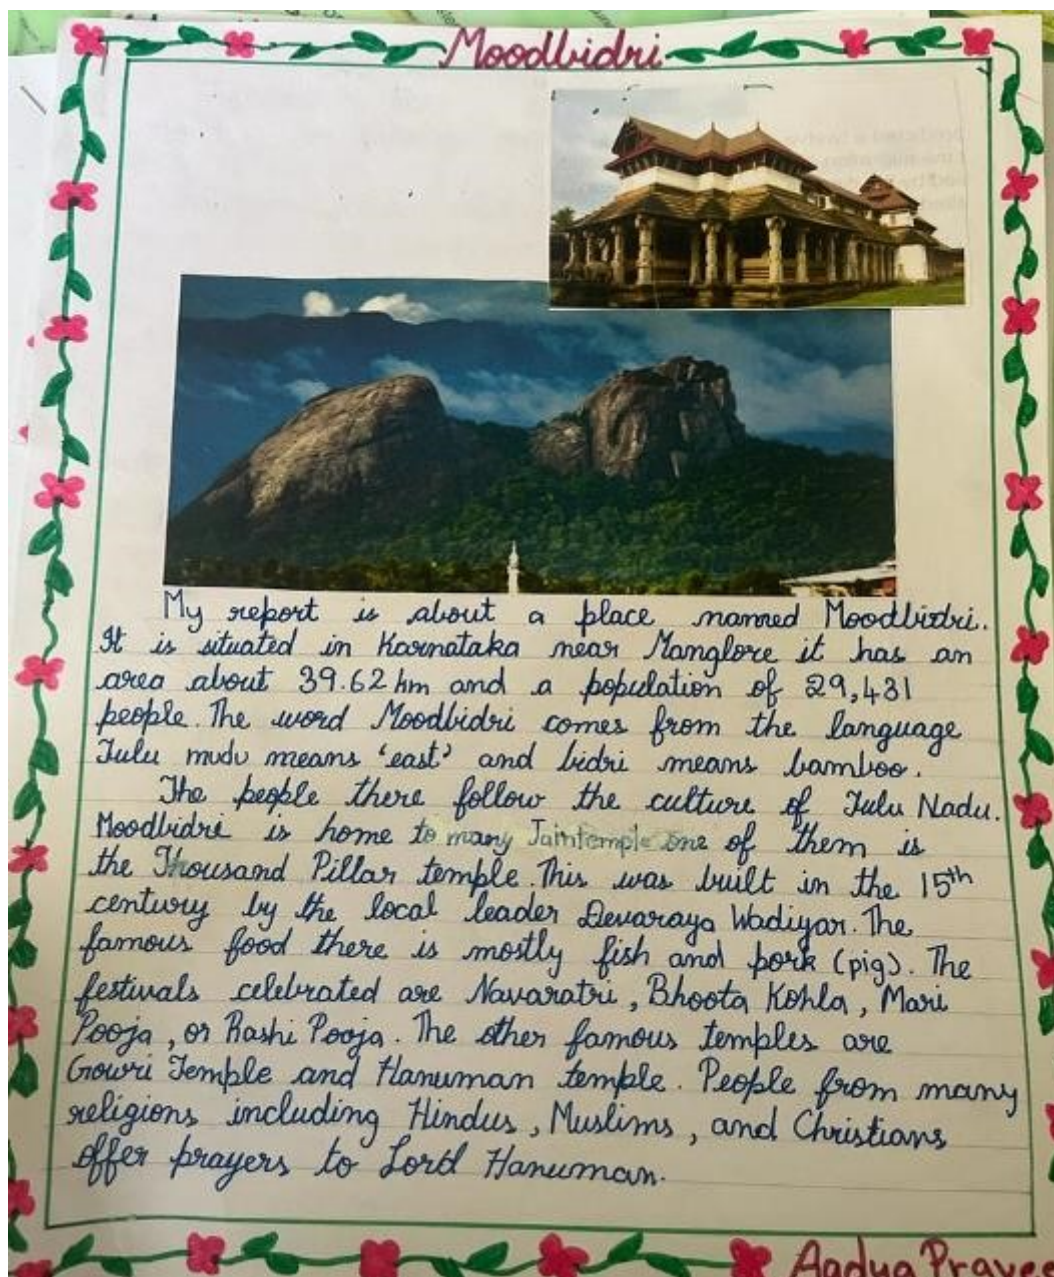 Moodbidri
My report is about a place named Moodbidri.
It is situated in Karnataka near Manglore it has an
area about 39.62 km and a population of 29,431
people. The word Moodbidri comes from the language
Tulu mudu means 'east' and bidri means bamboo.
The people there follow the culture of Tulu Nadu.
Moodbidri is home to many Jaintemple one of them is
the Thousand Pillar temple. This was built in the 15th
century by the local leader Devaraya Wadiyar. The
famous food there is mostly fish and pork (pig). The
festivals celebrated are Navaratri, Bhoota Kohla, Mari
Pooja, or Rashi Pooja. The other famous temples are
Gowri Temple and Hanuman temple. People from many
religions including Hindus, Muslims, and Christians
offer prayers to Lord Hanuman.
Aadya